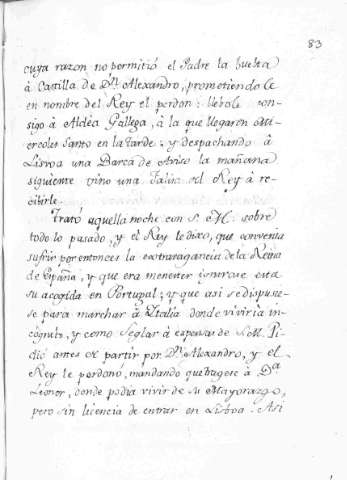 83
cuya razon no permitió el Padre la buelta
á Castilla de Dn. Alexandro, prometiendole
en nombre del Rey el perdon: llevole con-
sigo à Aldéa Gallega, à la que llegaron Mi-
ercoles Santo en la tarde; y despachando à
Lisvoa una Barca de Aviso la mañana
siguiente vino una Falúa del Rey à re-
cibirle.
Trató aquella noche con S. M. sobre
todo lo pasado, y el Rey le dixo, que convenia
sufrir por entonces la extravagancia de la Reina
de España, y que era menester esta
su acogida en Portugal; y que asi se dispusie-
se para marchar à Italia donde viviria in-
cognito, y como Seglar à expensas de S. M. Pi-
dió antes de partir por Dn. Alexandro, y el
Rey le perdonó, mandando que trugese à Da.
Léonor, donde podia vivir de su Mayorazgo,
pero sin licencia de entrar en Lisboa. Asi